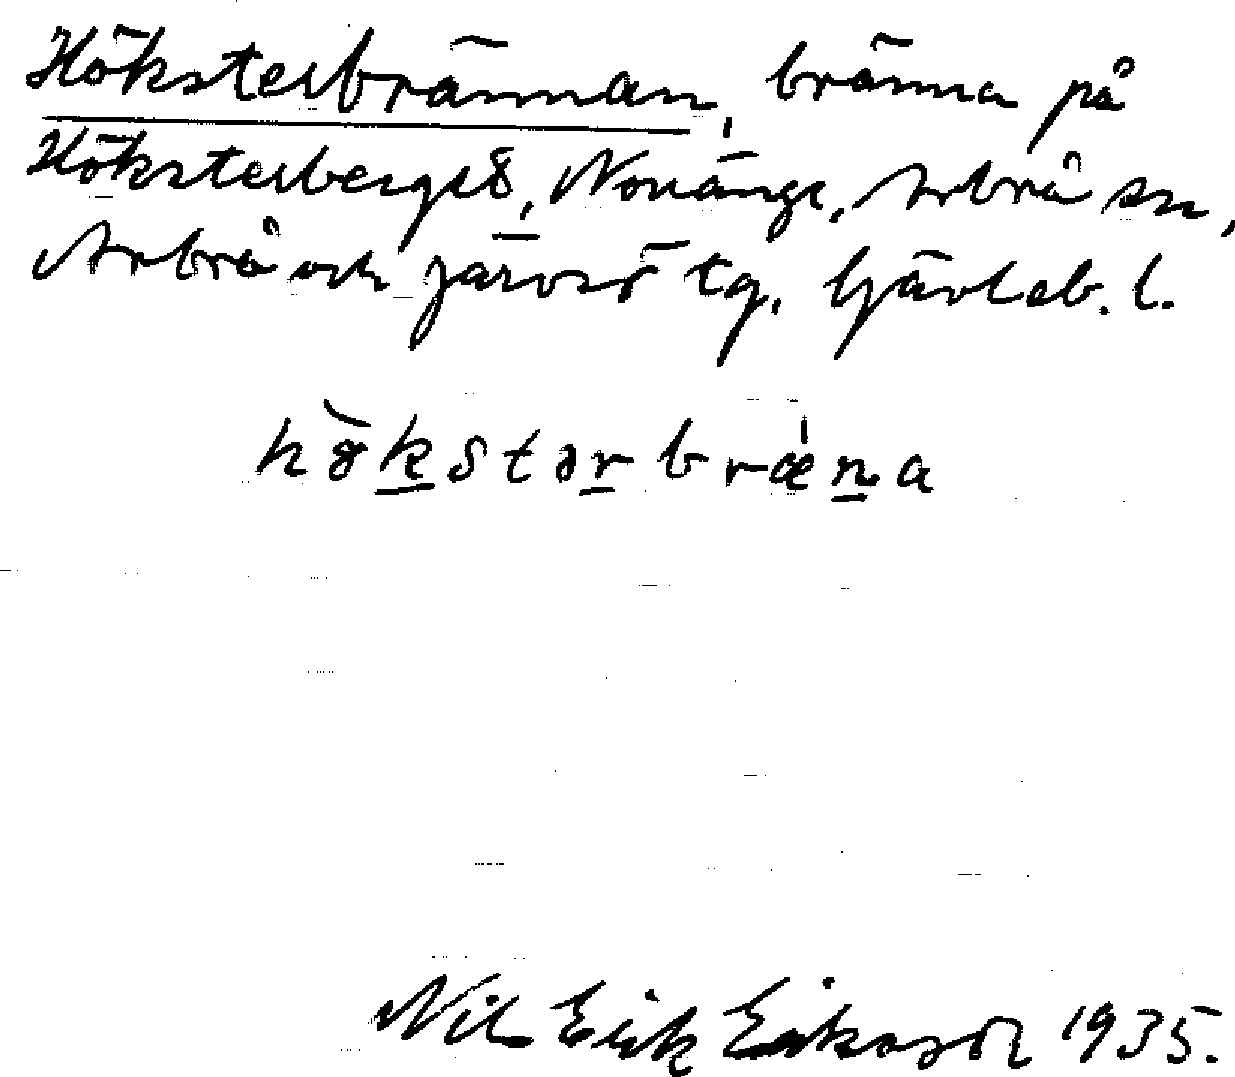 Höksterbrännan, bränna på
Höksterberget, Novänge, Arbrå sn,
Arbrå och Järvsö tg. Gävleb. l.
Nils Erik Eriksson 1935.